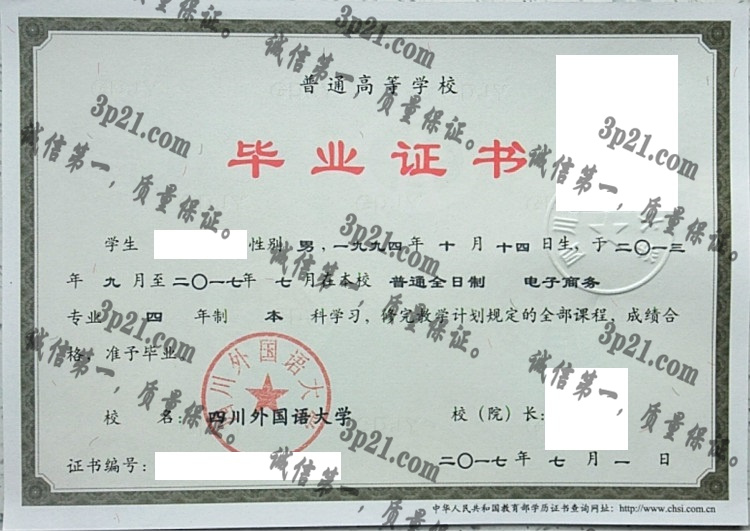 普通高等学校
毕业证书
学生 性别 男，一九九四年 十 月 十四日生，于二〇一三
年 九 月至二〇一七年 七 月在本校 普通全日制 电子商务
专业 四 年制 本 科学习，修完教学计划规定的全部课程，成绩合
格，准予毕业。
四川外国语大学
校 名：四川外国语大学 校（院）长：
证书编号： 二〇一七年 七 月 一 日
中华人民共和国教育部学历证书查询网址：http://www.chsi.com.cn
3p21.com
诚信第一，质量保证。
3p21.com
诚信第一，质量保证。
3p21.com
诚信第一，质量保证。
3p21.com
诚信第一，质量保证。
3p21.com
诚信第一，质量保证。
3p21.com
诚信第一，质量保证。
3p21.com
诚信第一，质量保证。
3p21.com
诚信第一，质量保证。